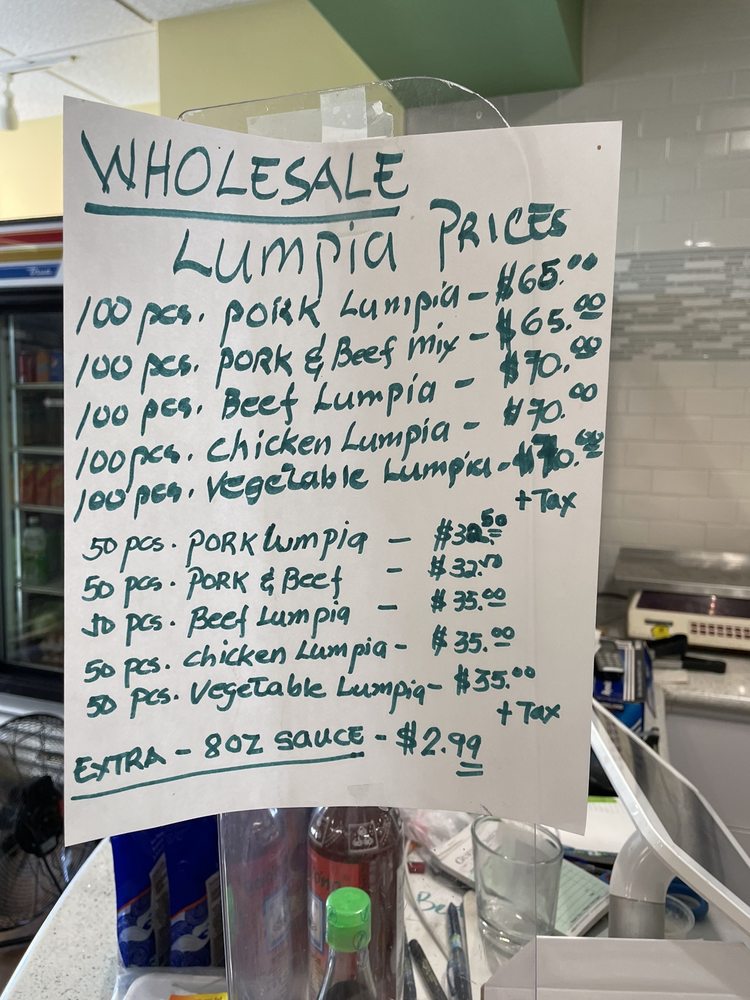 WHOLESALE
Lumpia PRICES
100 pcs. PORK Lumpia - $65.00
100 pcs. PORK & Beef mix - $65.00
100 pcs. Beef Lumpia - $70.00
100 pcs. Chicken Lumpia - $70.00
100 pcs. VegeTable Lumpia - $70.00
+ Tax
50 pcs. PORK Lumpia - $32.50
50 pcs. PORK & Beef - $32.50
50 pcs. Beef Lumpia - $35.00
50 pcs. Chicken Lumpia - $35.00
50 pcs. VegeTable Lumpia - $35.00
+ Tax
EXTRA - 8OZ SAUCE - $2.99